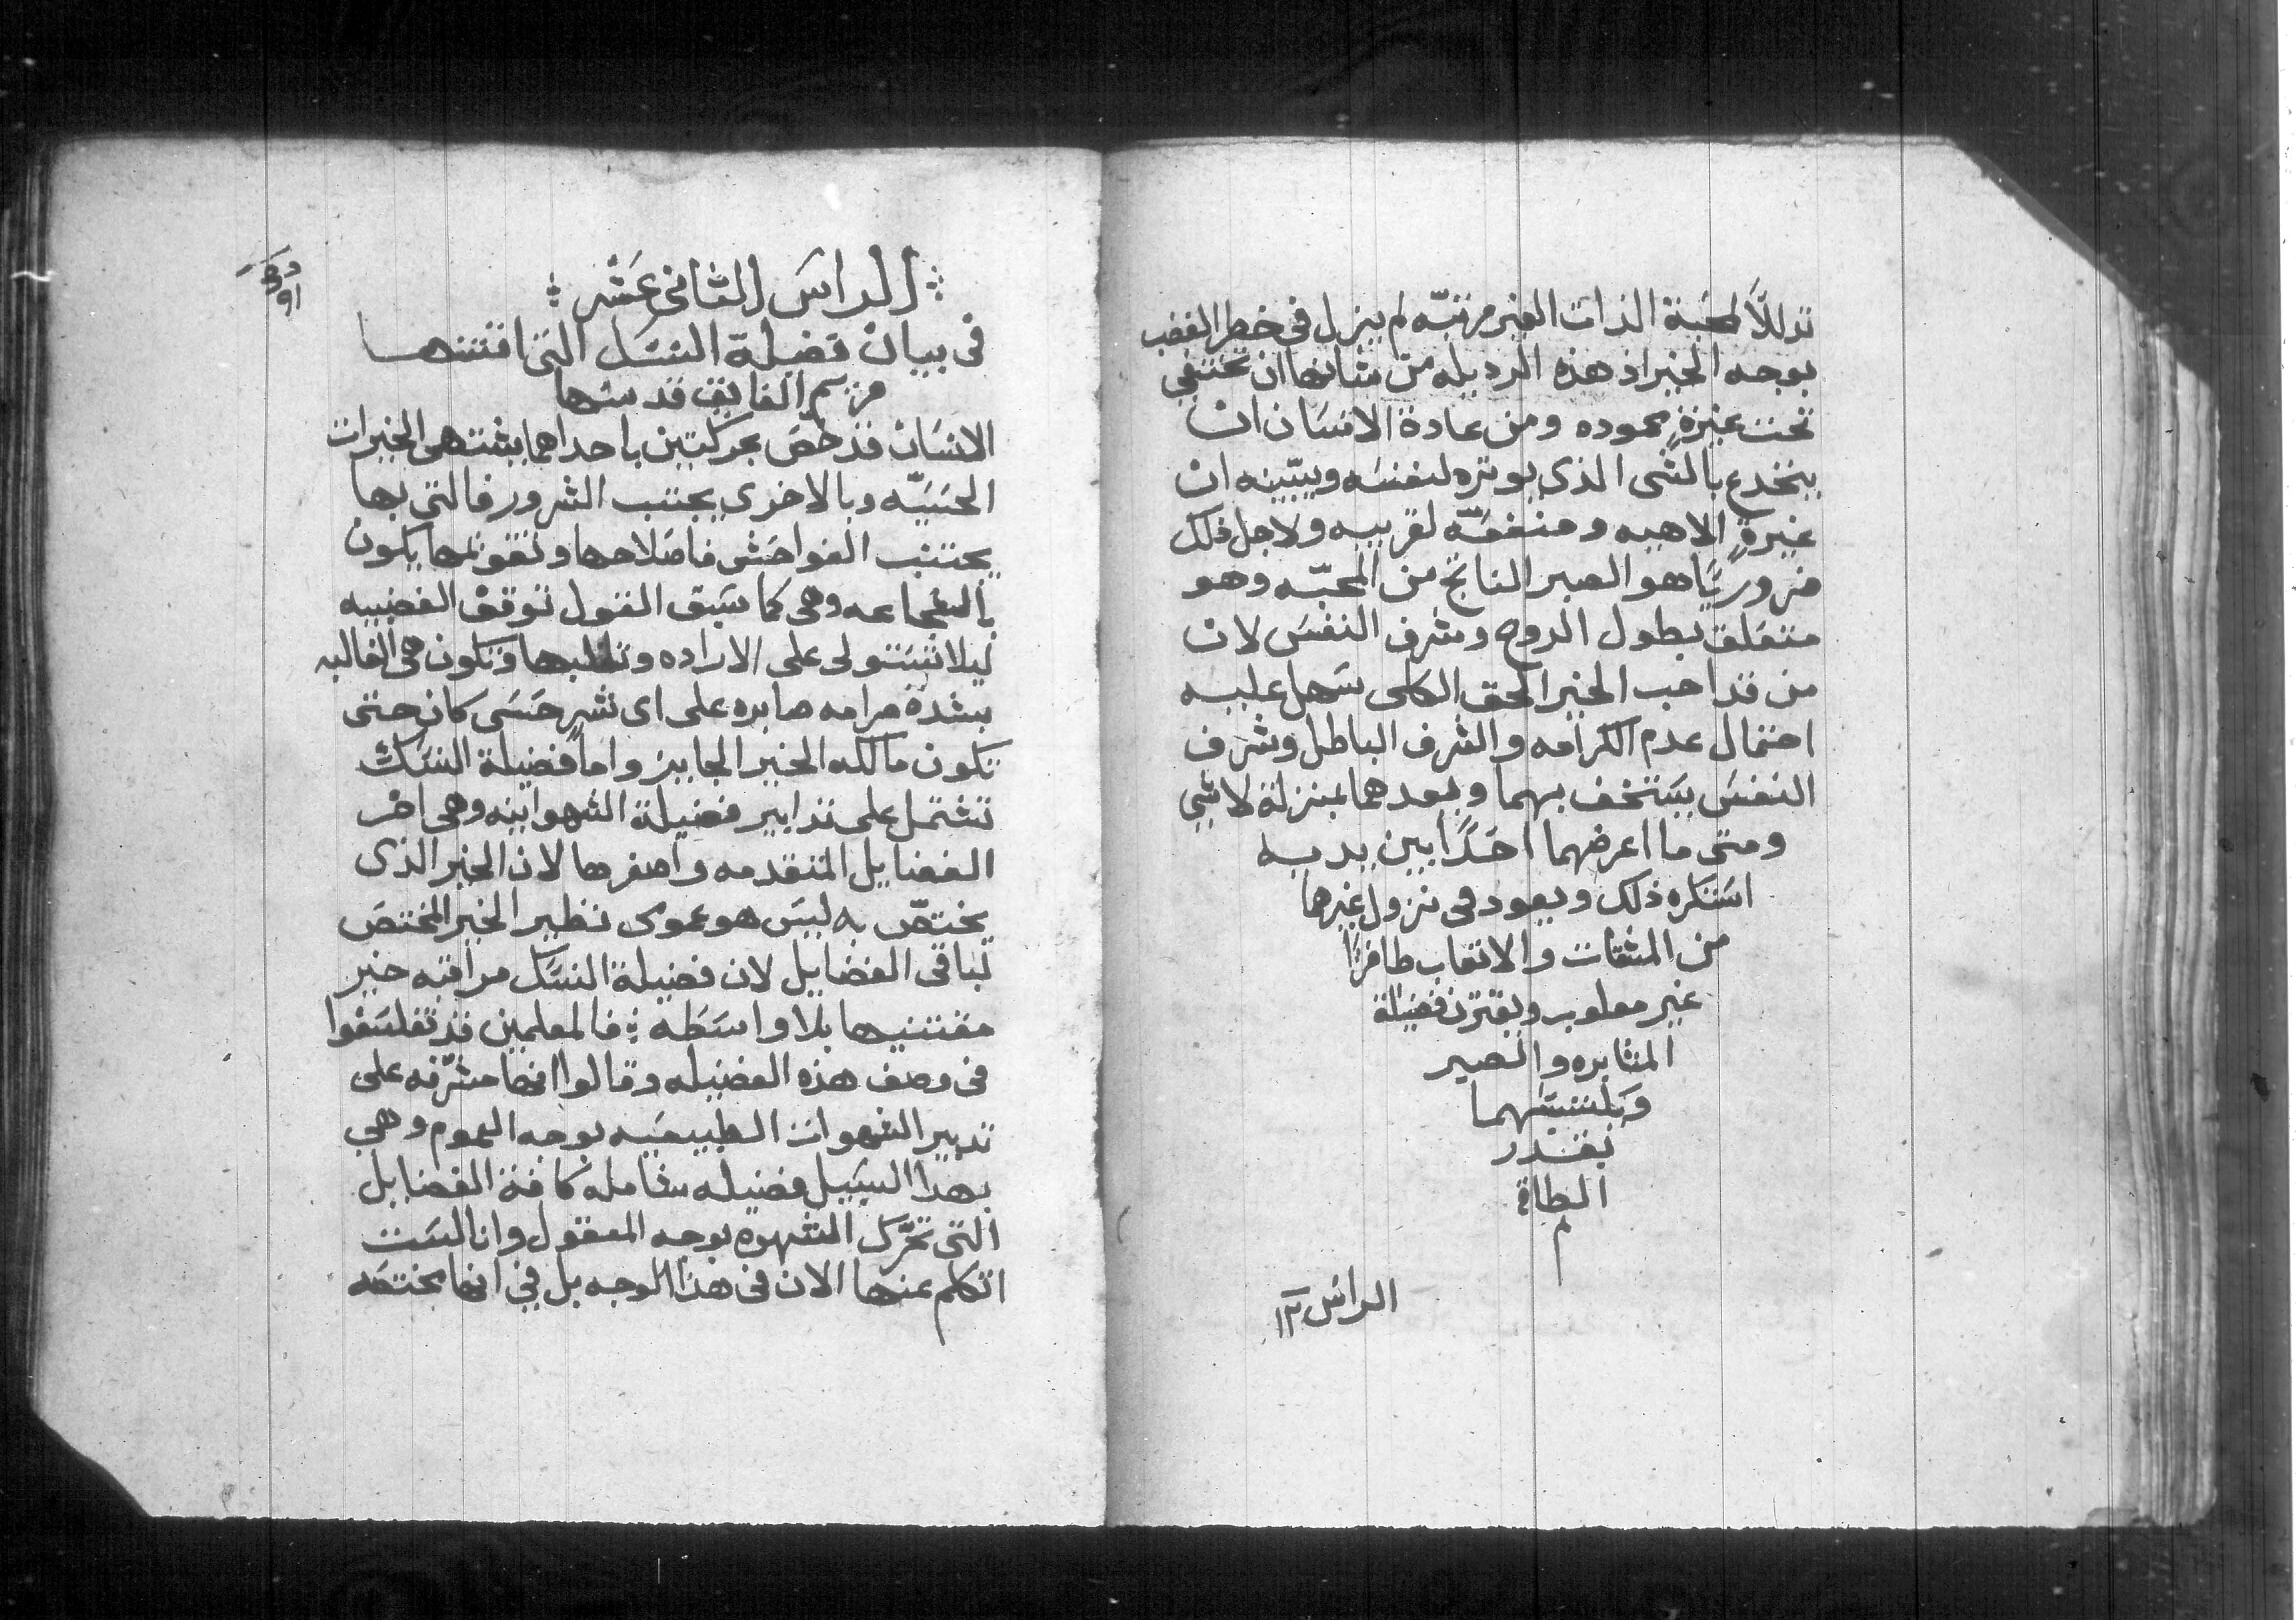 تدللاً لمحبة الذات الغير مرتبّه لم يزل في خطر الغضب
بوجه الخير اذ هذه الرديله من شانها ان تختفي
تحت غيرةٍ محموده ومن عادة الانسان ان
ينخدع بالشي الذي يوثره لنفسه ويبيّنه ان
غيرةٍ الاهيه ومنفعةّ لقريبه ولاجل ذلك
ضروريًا هو الصبر الناتج من المحبّه وهو
متعلق بطول الروح وشرف النفس لان
من قد احب الخير الحق الكلى سهل عليه
احتمال عدم الكرامه والشرف الباطل وشرف
النفس يستخف بهما ويعدهما بمنزلة لا شي
ومتى ما اعرضهما احدًا بين يديه
استكره ذلك ويعود فى نزول غيرها
من المشقات والاتعاب ظافرًا
غير مغلوب ويقترن فضيلة
المثابره والصبر
وبلسيتهما
بقدر
الطاقة
م
الراس ١٢
الراس الثانى عشر
فى بيان فضيلة النسك التى اقتنتها
مريم الفايق قدسها
الانسان قد خصّ بحركتين باحداهما يشتهى الخيرات
الحسيّه وبالاخرى يجتنب الشرور فالتى بها
يجتنب الفواحش فاصلاحها وتقويمها يكون
بالشجاعه وهى كما سبق القول توقف الغضبيه
ليلا تستولى على الاراده وتغلبها وتكون هى الغالبه
بشدة مرامه صابره على اى شرٍ حسى كان حتى
تكون مالكه الخير الجايز واما فضيلة النسك
تشتمل على تدابير فضيلة الشهوانيه وهى اخر
الفضايل المتقدمه واصغرها لان الخير الذى
يختصّ به ليس هو عموى نظير الخير المختص
لباقى الفضايل لان فضيلة النسك مراقبه خير
مقتنيها بلا واسطه : فالمعلمين قد تفلسفوا
فى وصف هذه الفضيله وقالوا انها مشرّفه على
تدبير الشهوات الطبيعيه بوجه العموم وهي
بهذا السبيل فضيله شامله كافة الفضايل
التى تحرّك الشهوه بوجه المعقول وانا لست
اتكلم عنها الان فى هذا الوجه بل في انها مختصه